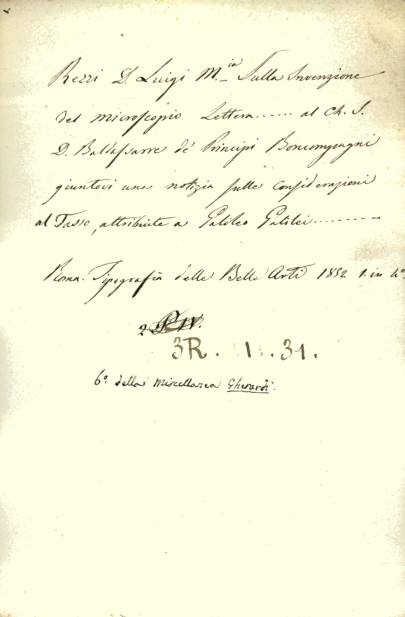 Rezzi D. Luigi M.ia Sulla Invenzione
del microscopio Lettera...... al Ch. S.
D. Baldassarre de' Principi Boncompagni
giuntovi una notizia sulle considerazioni
al Tasso, attribuite a Galileo Galilei............
Roma. Tipografia delle Belle Arti 1852 1. in 4.o
2
3R. 1. 31.
6.a della Miscellanea Gherardi.